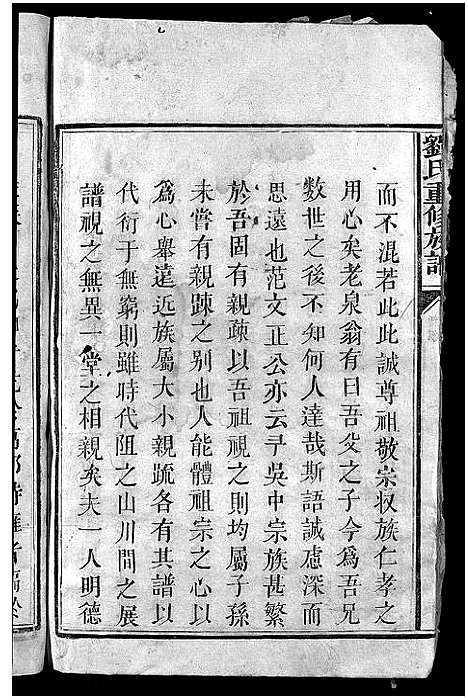 劉氏重修族譜
而不混若此此誠尊祖敬宗収族仁孝之
用心矣老泉翁有曰吾父之子今為吾兄
數世之後不知何人達哉斯語誠慮深而
思遠也范文正公亦云予吳中宗族甚繁
於吾固有親疎以吾祖視之則均屬子孫
未嘗有親踈之别也人能體祖宗之心以
為心舉遠近族屬大小親疏各有其譜以
代衍于無窮則雖時代阻之山川間之展
譜視之無異一堂之相親矣夫一人明德